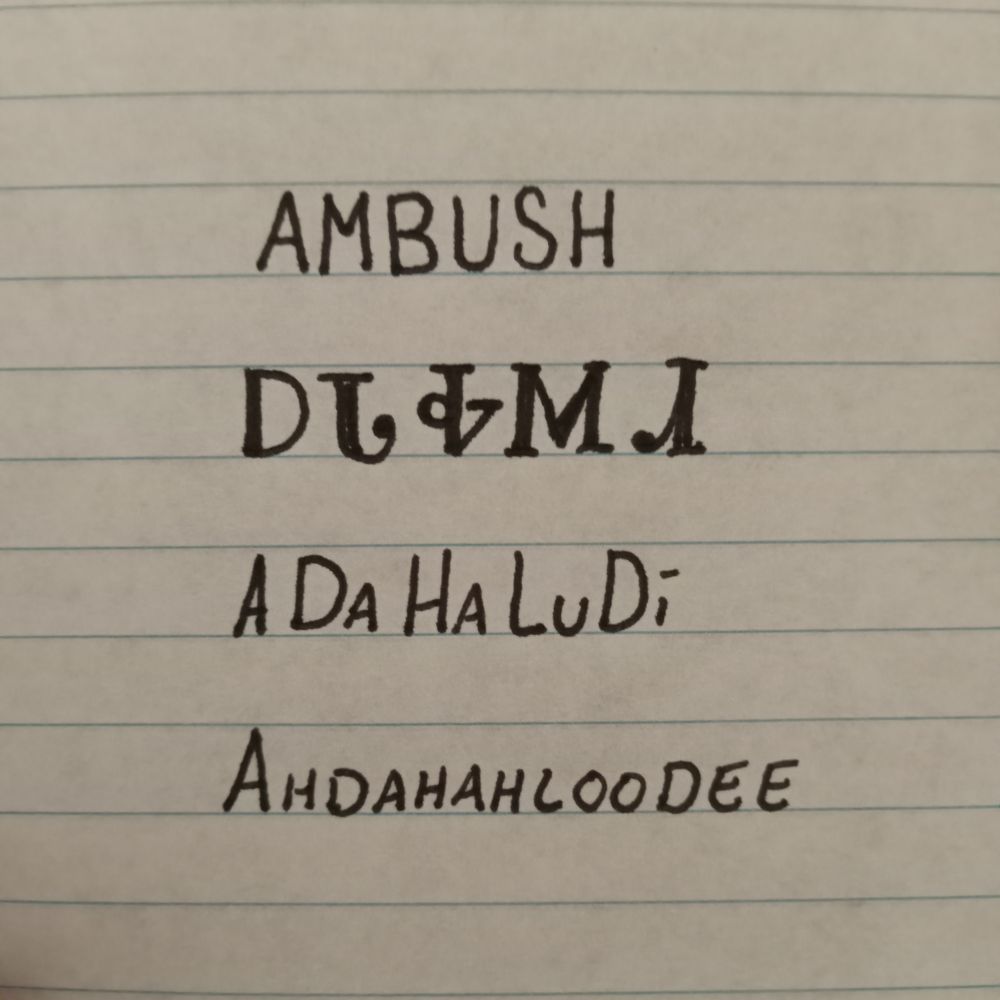 AMBUSH
ᎠᏓᎭᎷᏗ
A DA HA LU Di
AHDAHAHLOODEE